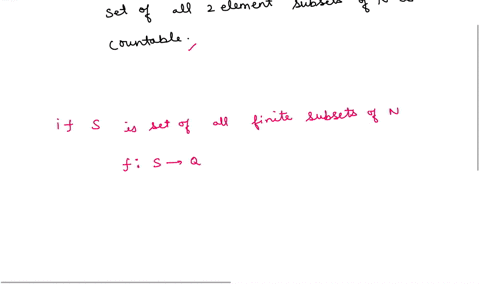 set of all 2 element subsets of N
countable.
if S is set of all finite subsets of N
f: S → Q